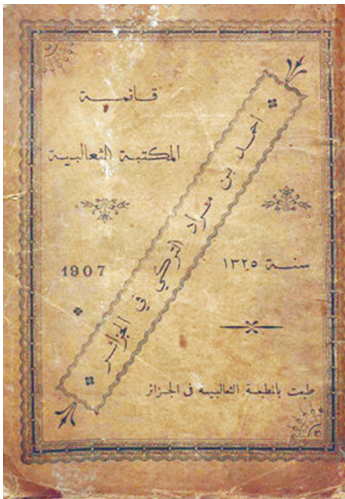 قائمة
المكتبة الثعالبية
احمد بن مراد التركي في الجزائر
سنة ١٣٢٥
1907
طبعت بالمطبعة الثعالبية في الجزائر